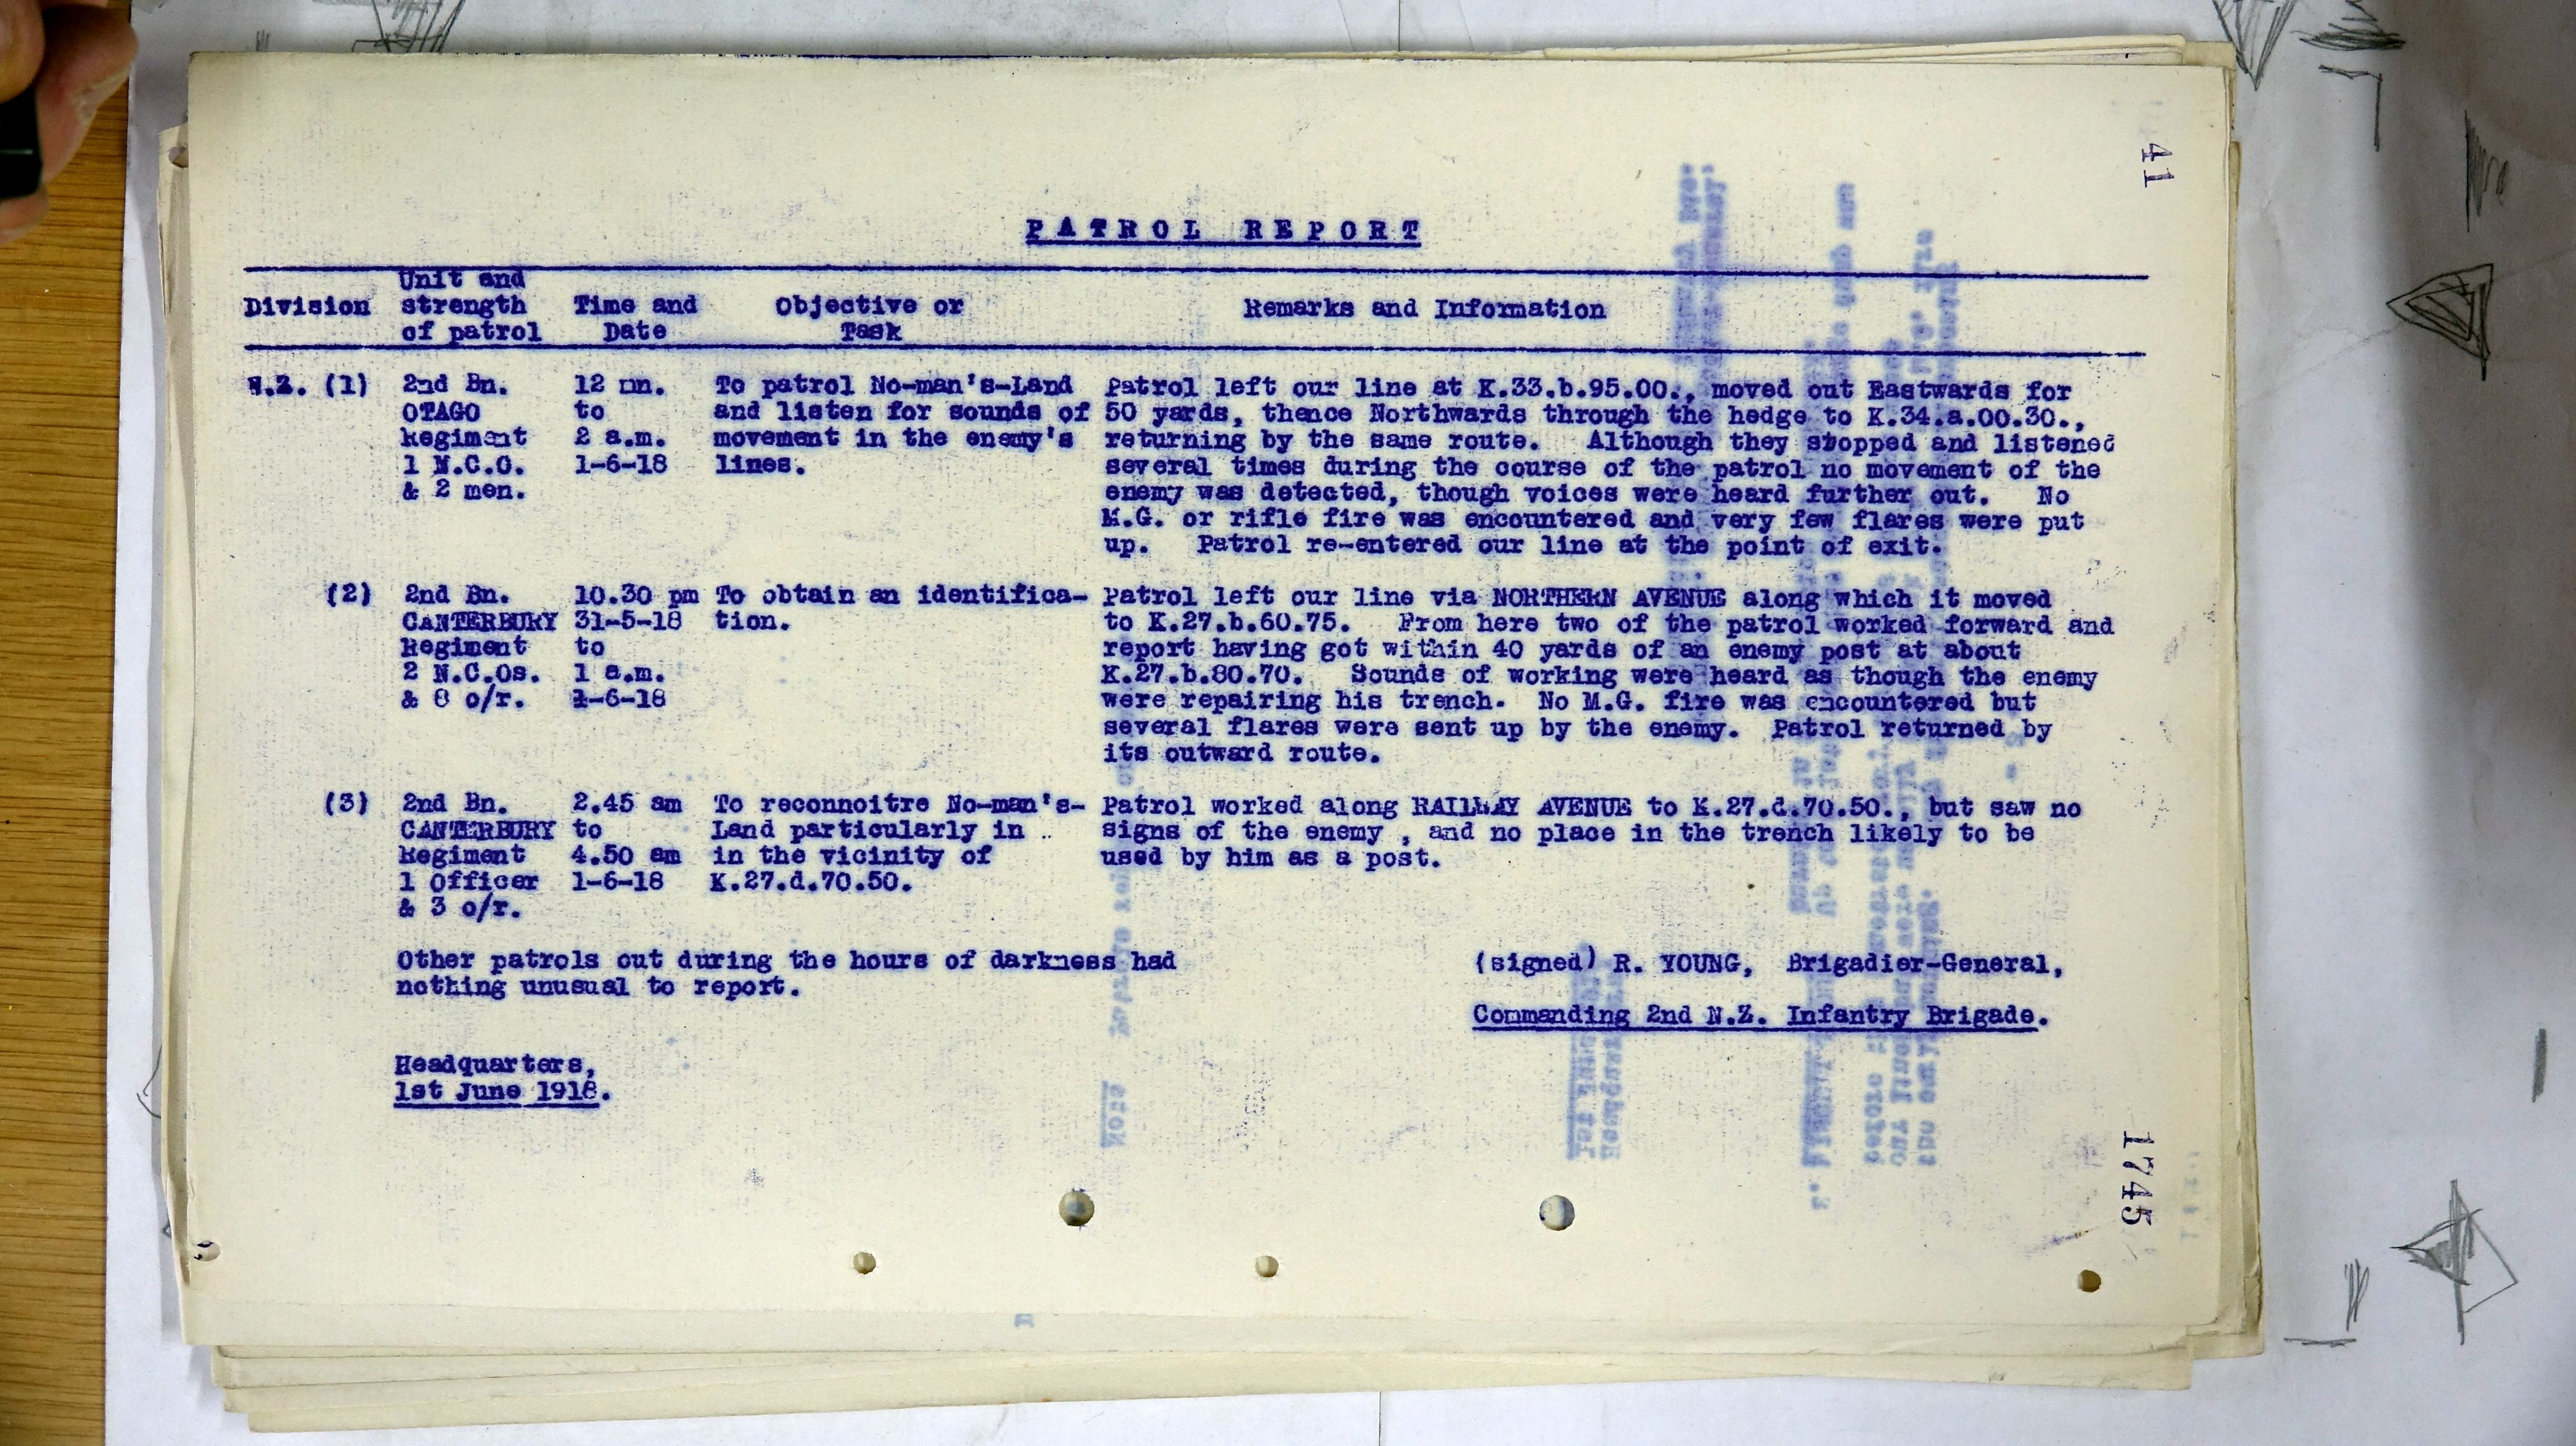 41
PATROL REPORT
Division
Unit and
strength
of patrol
Time and
Date
Objective or
Task
Remarks and Information
N.Z. (1)
2nd Bn.
OTAGO
Regiment
1 N.C.O.
& 2 men.
12 mn.
to
2 a.m.
1-6-18
To patrol No-man's-Land
and listen for sounds of
movement in the enemy's
lines.
Patrol left our line at K.33.b.95.00., moved out Eastwards for
50 yards, thence Northwards through the hedge to K.34.a.00.30.,
returning by the same route. Although they stopped and listened
several times during the course of the patrol no movement of the
enemy was detected, though voices were heard further out. No
M.G. or rifle fire was encountered and very few flares were put
up. Patrol re-entered our line at the point of exit.
(2)
2nd Bn.
CANTERBURY
Regiment
2 N.C.Os.
& 8 o/r.
10.30 pm
31-5-18
to
1 a.m.
1-6-18
To obtain an identifica-
tion.
Patrol left our line via NORTHERN AVENUE along which it moved
to K.27.b.60.75. From here two of the patrol worked forward and
report having got within 40 yards of an enemy post at about
K.27.b.80.70. Sounds of working were heard as though the enemy
were repairing his trench. No M.G. fire was encountered but
several flares were sent up by the enemy. Patrol returned by
its outward route.
(3)
2nd Bn.
CANTERBURY
Regiment
1 Officer
& 3 o/r.
2.45 am
to
4.50 am
1-6-18
To reconnoitre No-man's-
Land particularly in ..
in the vicinity of
K.27.d.70.50.
Patrol worked along RAILWAY AVENUE to K.27.d.70.50., but saw no
signs of the enemy , and no place in the trench likely to be
used by him as a post.
Other patrols out during the hours of darkness had
nothing unusual to report.
(signed) R. YOUNG, Brigadier-General,
Commanding 2nd N.Z. Infantry Brigade.
Headquarters,
1st June 1918.
1745